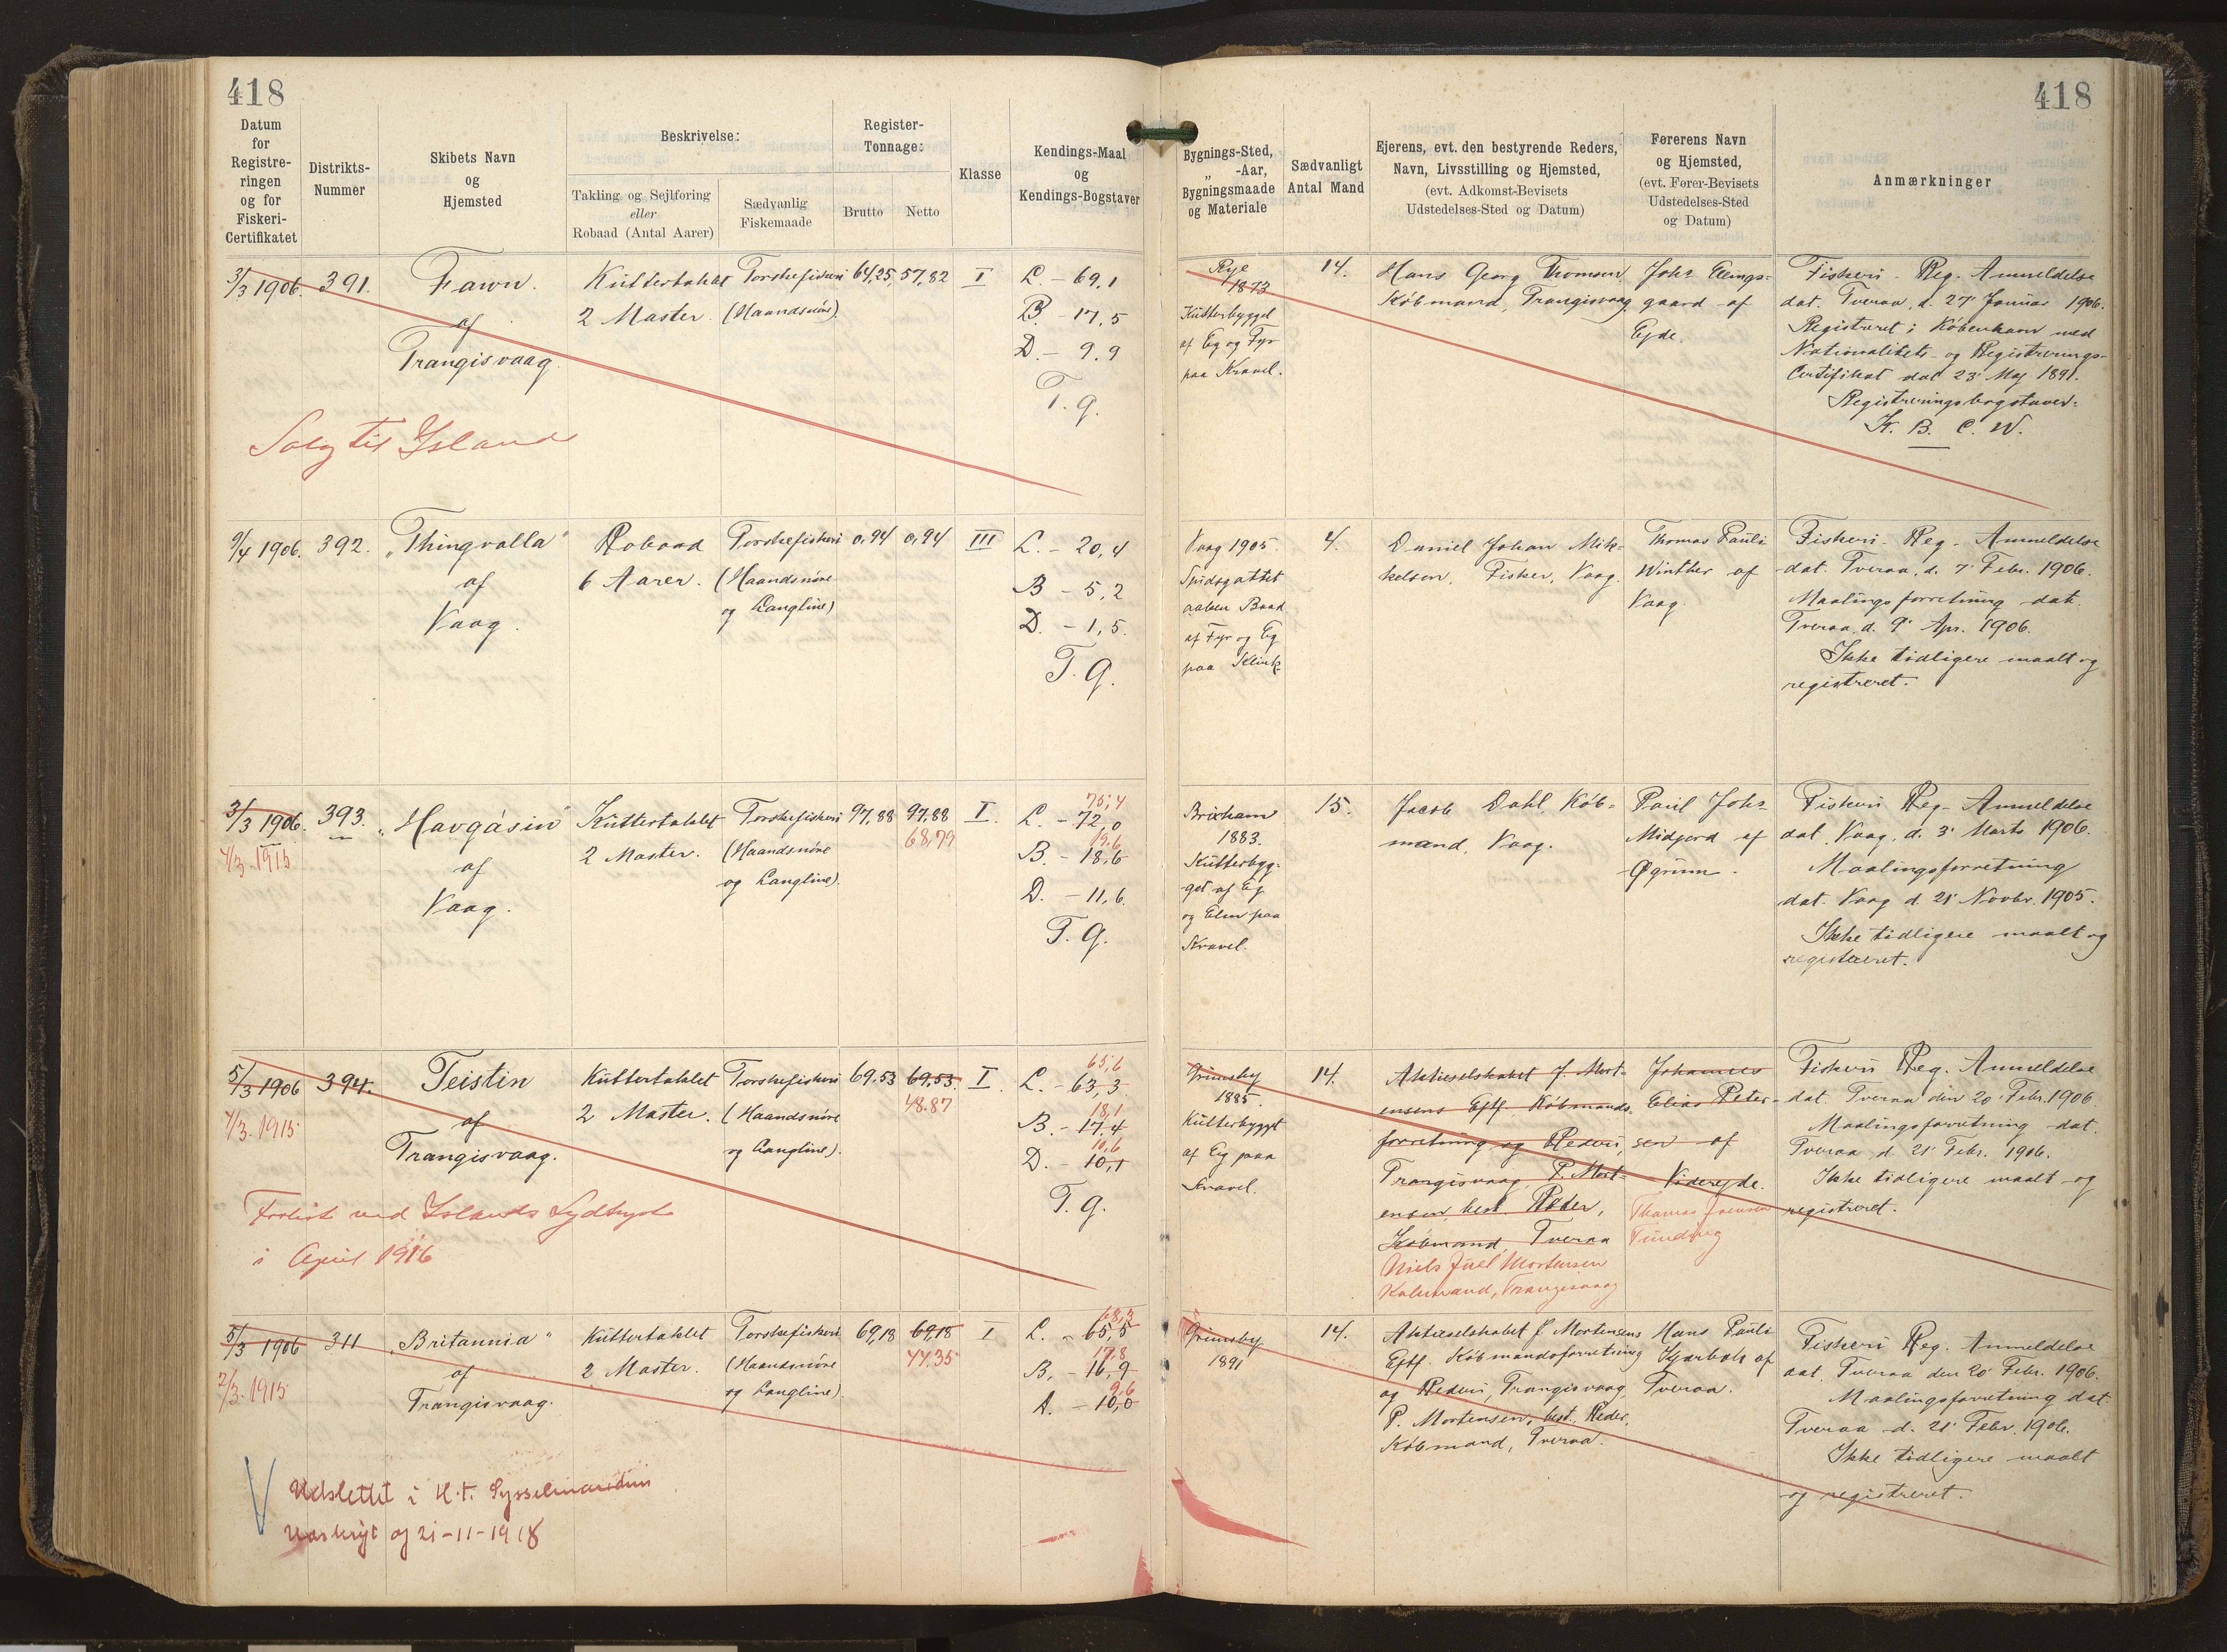 418
418
Datum
for
Registre-
ringen
og for
Fiskeri-
Certifikatet
Distrikts-
Nummer
Skibets Navn
og
Hjemsted
Beskrivelse:
Takling og Sejlføring
eller
Robaad (Antal Aarer)
Sædvanlig
Fiskemaade
Register-
Tonnage:
Brutto
Netto
Klasse
Kendings-Maal
og
Kendings-Bogstaver
Bygnings-Sted,
„ -Aar,
Bygningsmaade
og Materiale
Sædvanligt
Antal Mand
Ejerens, evt. den bestyrende Reders,
Navn, Livsstilling og Hjemsted,
(evt. Adkomst-Bevisets
Udstedelses-Sted og Datum)
Førerens Navn
og Hjemsted,
(evt. Fører-Bevisets
Udstedelses-Sted
og Datum)
Anmærkninger
3/3 1906.
391.
Fawn.
af
Trangisvaag
Kuttertaklet
2 Master.
Torskefiskeri
(Haandsnøre).
64,25
57,82
I
L. - 69,1
B. - 17,5
D. - 9.9
T. g.
Rye
1873
Kutterbygget
af Eg og Fyr
paa Kravel.
14.
Hans Georg Thomsen
Købmand, Trangisvaag.
Johs Ellings-
gaard af
Ejde.
Fiskeri-Reg. Anmeldelse
dat. Tveraa, d. 27' Januar 1906.
Registreret i København med
Nationalitets- og Registrerings-
Certifikat dat 23' Maj 1891.
Registreringsbogstaver:
K. B. C. W.
Solg til Island
9/4 1906.
392.
„Thingvalla"
af
Vaag.
Robaad
6 Aarer.
Torskefiskeri
(Haandsnøre
og Langline)
0,94
0,94
III
L. - 20,4
B - 5,2
D. - 1,5.
T. g.
Vaag 1905.
Spidsgattet
aaben Baad
af Fyr og Eg
paa Klink
4.
Daniel Johan Mik-
kelsen, Fisker, Vaag.
Thomas Pauli
Winther af
Vaag.
Fiskeri-Reg- Anmeldelse
dat. Tveraa, d. 7' Febr. 1906.
Maalingsforretning dat.
Tveraa, d. 9' Apr. 1906.
Ikke tidligere maalt og
registreret.
3/3 1906.
4/3. 1915
393.
„Havgásin"
af
Vaag.
Kuttertaklet
2 Master.
Torskefiskeri
(Haandsnøre
og Langline).
97,88
97,88
68,79
I.
75,4
L. - 72,0
19,6
B. - 18,6
D. - 11,6.
T. g.
Brixham
1883.
Kutterbyg-
get af Eg
og Elm paa
Kravel.
15.
Jacob Dahl, Køb-
mand, Vaag.
Paul Johs
Midjord af
Øgrum.
Fiskeri Reg- Anmeldelse
dat. Vaag, d. 3' Marts 1906.
Maalingsforretning
dat. Vaag d. 21' Novbr. 1905.
Ikke tidligere maalt og
registreret.
5/3 1906
4/3. 1915
394.
Teistin
af
Trangisvaag.
Kuttertaklet
2 Master.
Torskefiskeri
(Haandsnøre
og Langline).
69.53
69,53.
48.87
I.
65,6
L. - 63,3
18,1
B. - 17,4
10,6
D. - 10,1
T. g.
Grimsby
1885.
Kutterbygget
af Eg paa
Kravel.
14.
Aktieselskabet J. Mort-
ensens Eftf. Købmands-
forretning og Rederi,
Trangisvaag, P. Mort-
ensen, best. Reder,
Købmand, Tveraa
Niels Juel Mortensen
Købmand, Trangisvaag
Johannes
Elias Peter-
sen af
Videreide.
Thomas Joensen
Funding
Fiskeri Reg. Anmeldelse
dat. Tveraa den 20' Febr. 1906
Maalingsforretning dat.
Tveraa, d. 21' Febr. 1906.
Ikke tidligere maalt og
registreret.
Forlist ved Islands Sydkyst
i April 1916
5/3 1906
2/3. 1915
311
„Britannia"
af
Trangisvaag.
Kuttertaklet
2 Master.
Torskefiskeri
(Haandsnøre
og Langline).
69,18
69,18
47,35
I
68,3
L. - 65,5
17,8
B. - 16,9
9,6
D. - 10,0
Grimsby
1891
14.
Aktieselskabet J. Mortensens
Eftf. Købmandsforretning
og Rederi, Trangisvaag,
P. Mortensen, best. Reder,
Købmand, Tveraa.
Hans Pauli
Kjærbæk af
Tveraa.
Fiskeri Reg. Anmeldelse
dat. Tveraa den 20' Febr. 1906.
Maalingsforretning dat.
Tveraa d. 21' Febr. 1906.
Ikke tidligere maalt
og registreret.
Udslettet i H. t. Sysselmandens
Udskrift af 21-11-1918